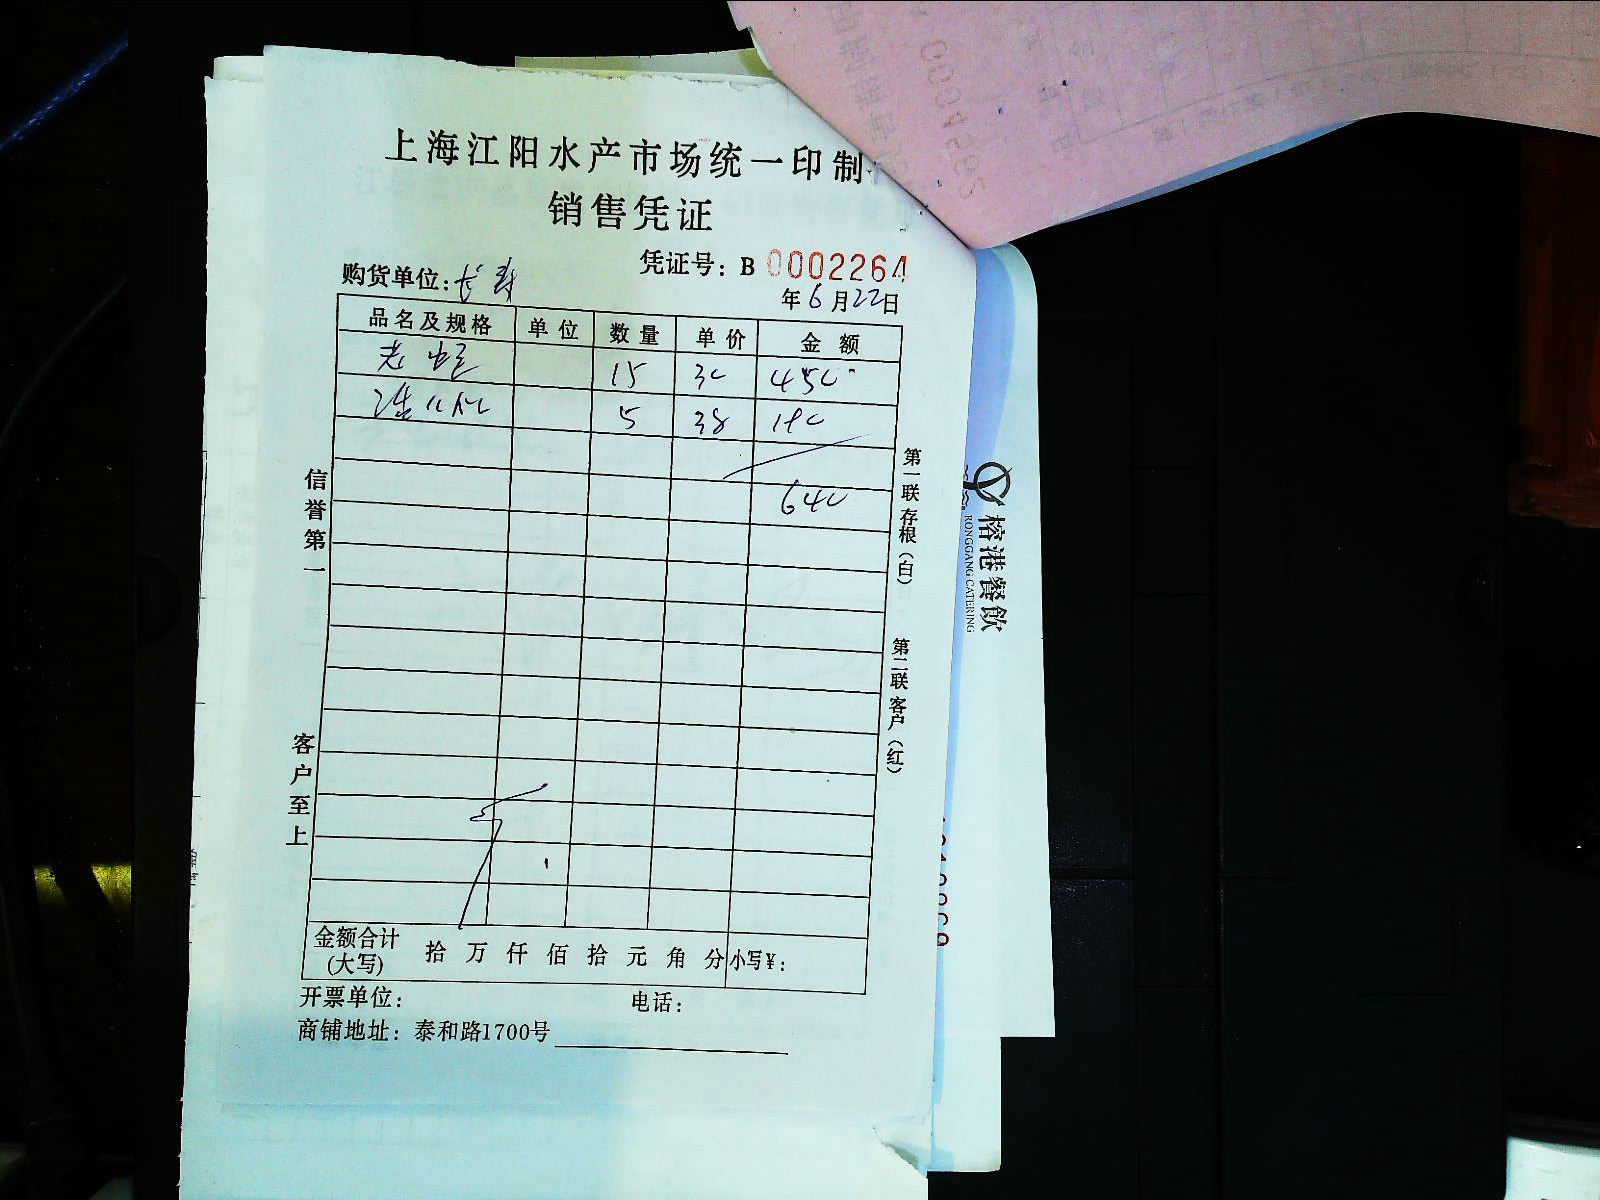 上海江阳水产市场统一印制
销售凭证
凭证号：B 0002264
购货单位：长寿
年6月22日
品名及规格 单位 数量 单价 金额
15 30 450
5 38 190
640
信誉第一
客户至上
第一联存根（白）
第二联客户（红）
金额合计(大写) 拾 万 仟 佰 拾 元 角 分 小写¥：
开票单位： 电话：
商铺地址：泰和路1700号
榕港餐飲
RONGGANG CATERING